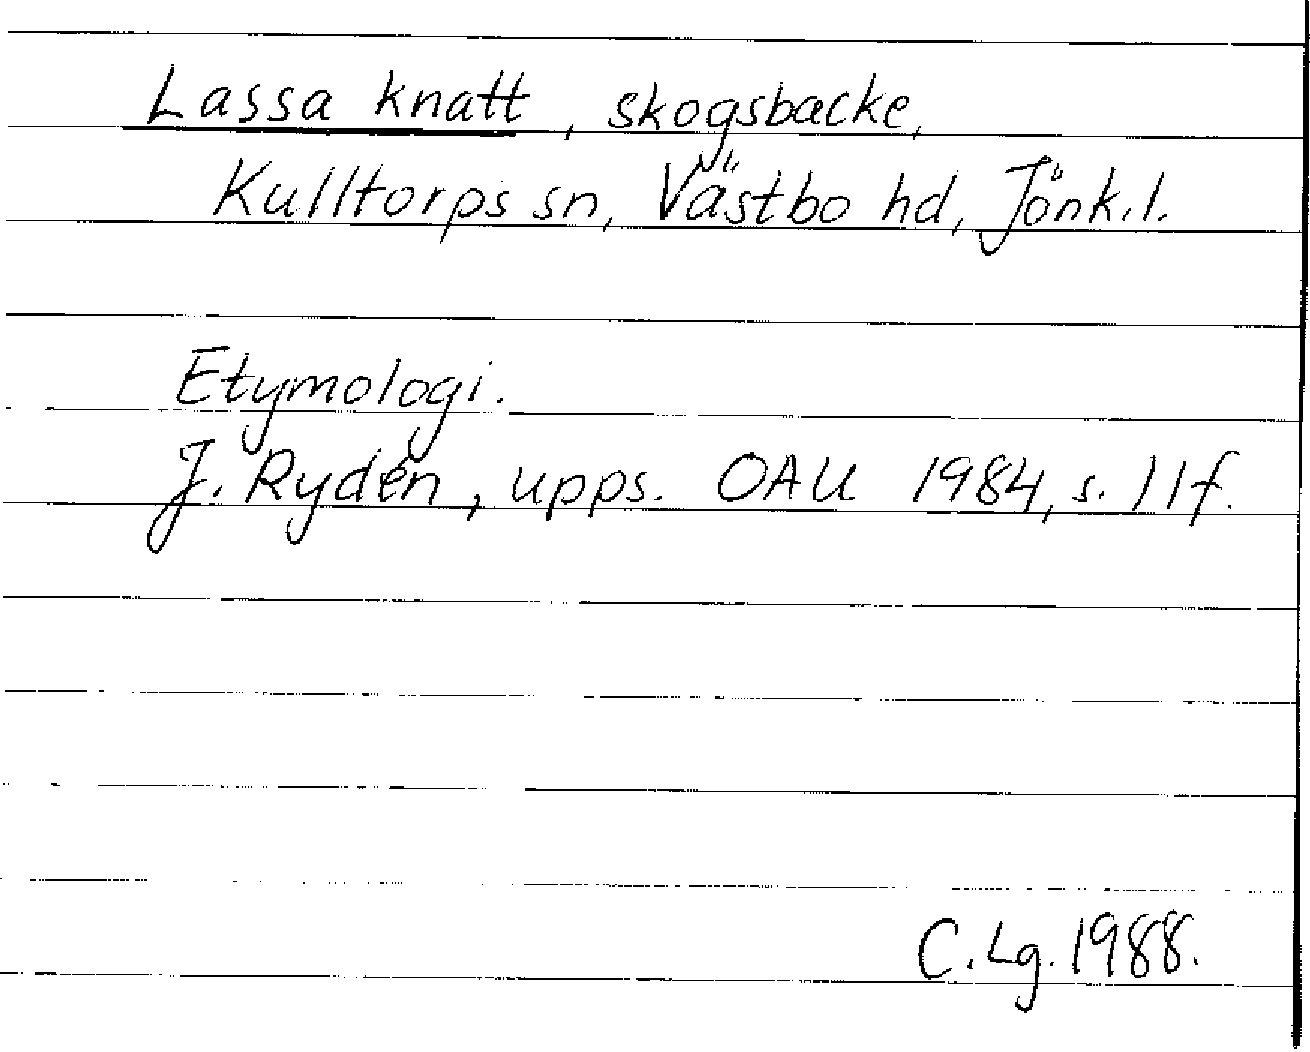 Lassa knatt, skogsbacke,
Kulltorps sn, Västbo hd, Jönk.l.
Etymologi.
J. Rydén, upps. OAU 1984, s. 11f.
C.Lg. 1988.